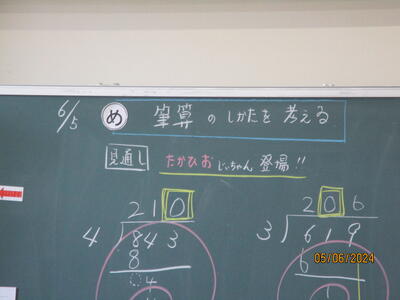 6/5 め 筆算のしかたを考える
見通し たかひおじいちゃん登場!!
210
4)843
8
4
206
3)619
6
1
05/06/2024